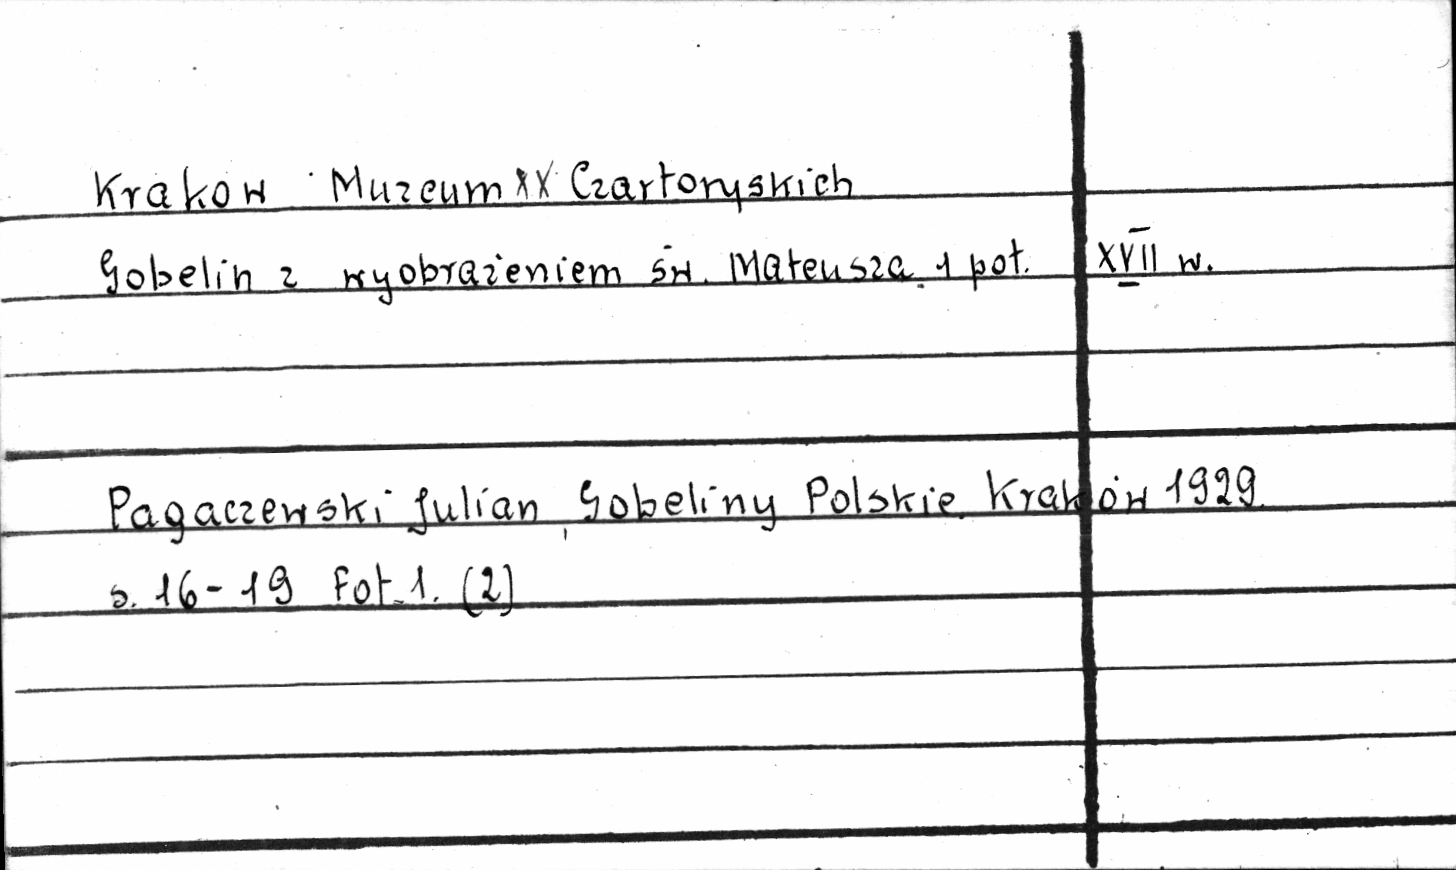 Krakow Muzeum XX Czartoryskich
Gobelin z wyobrażeniem św. Mateusza. 1 poł. XVII w.
Pagaczewski Julian, Gobeliny Polskie. Kraków 1929.
s. 16-19 Fot. 1. (2)